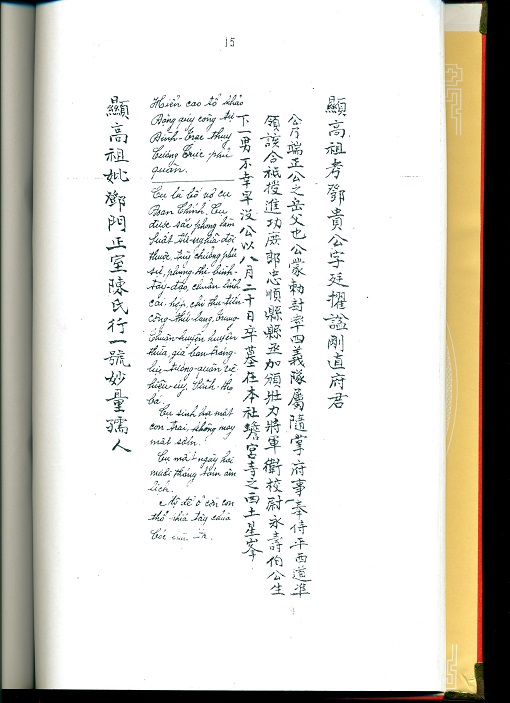 15
顯高祖考鄧貴公字廷擢諡剛直府君
公乃端正公之岳父也公蒙勅封率四義隊屬隨掌府事奉侍平西道準
領該合祇授進功庶郎忠順縣縣丞加頒壯力將軍衛校尉永壽伯公生
下一男不幸早没公以八月二十日卒墓在本社蟾宮寺之西土星峯
Hiển cao tổ khảo
Đặng quý công tự
Đình Trạc thụy
Cương Trực phủ
quân.
Cụ là bố vợ cụ
Đoan Chính. Cụ
được sắc phong làm
suất tứ nghĩa đội
thuộc tùy chưởng phủ
sự, phụng thị bình
tây đạo, chuẩn lĩnh
cai hợp, chi thụ tiến
công thứ lang, trung
thuận huyện huyện
thừa, gia ban tráng
lực tướng quân vệ
hiệu úy, Vĩnh thọ
bá.
Cụ sinh hạ một
con trai không may
mất sớm.
Cụ mất ngày hai
mươi tháng tám âm
lịch.
Mộ để ở cồn con
thổ phía tây chùa
Cóc
顯高祖妣鄧門正室陳氏行一號妙量孺人